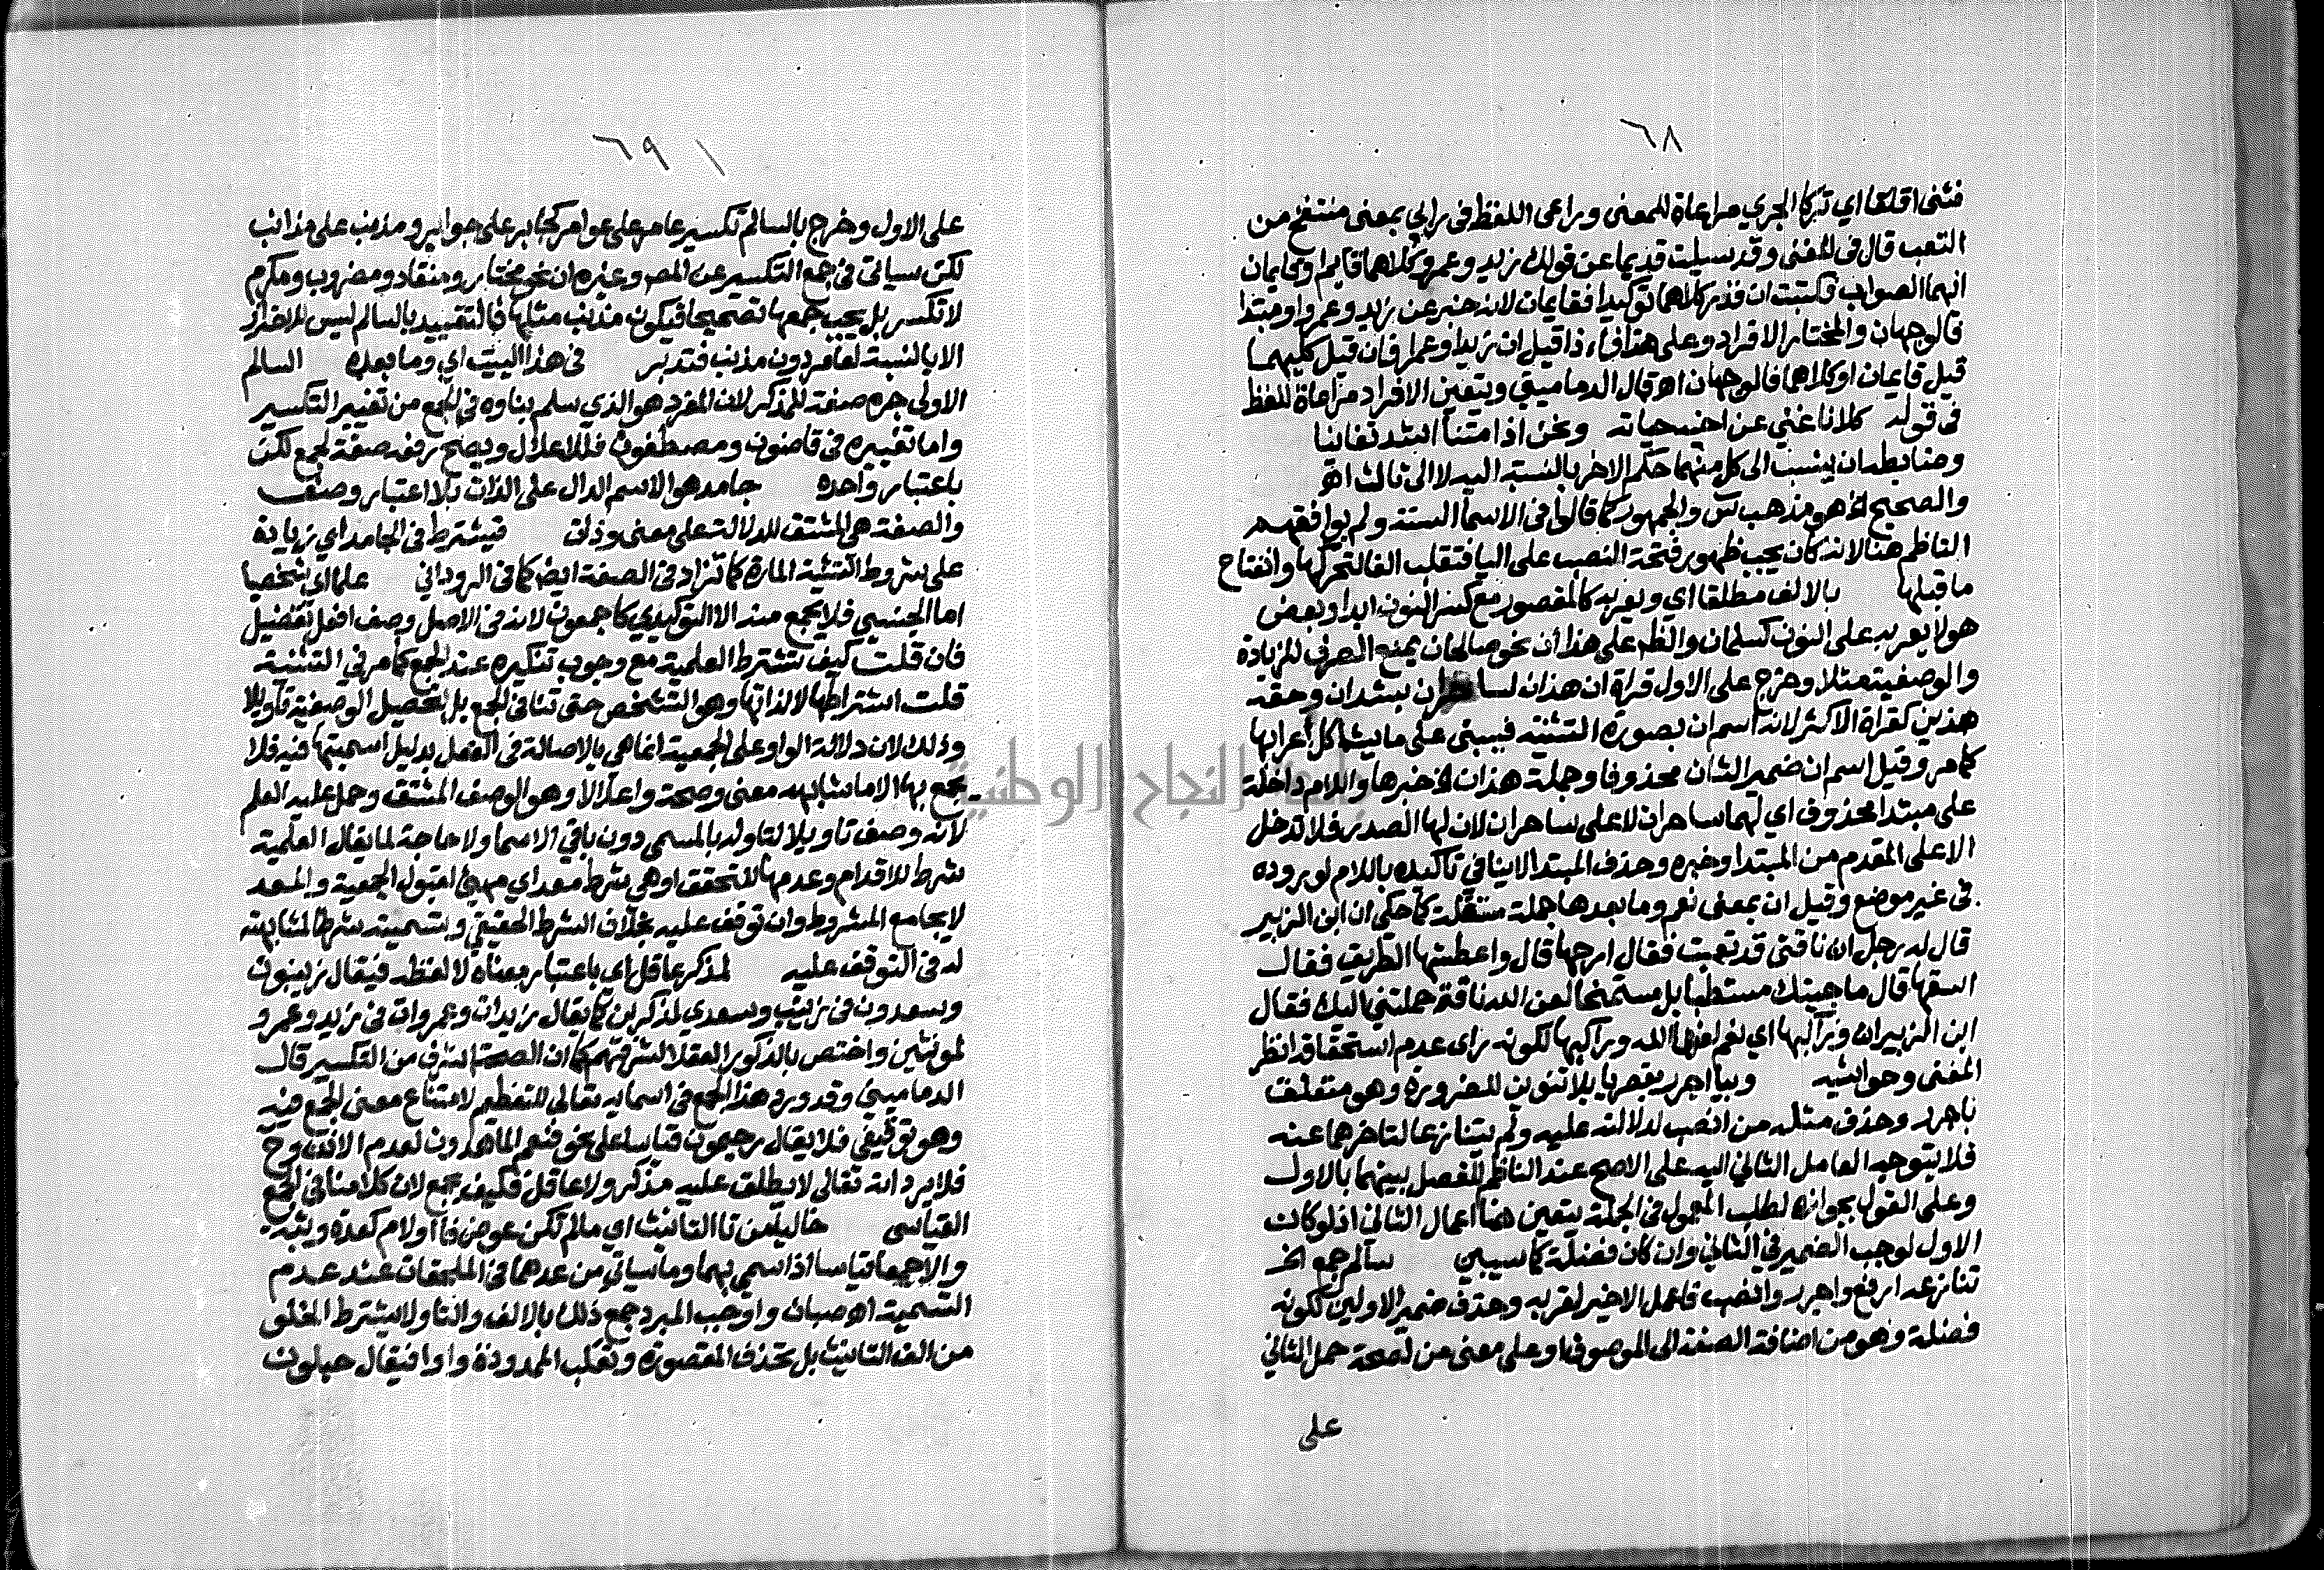 ٦٨
فثنى اقلعا اي تركا الجري مراعاة للمعنى وراعى اللفظ في رابي بمعنى منتفخ من
التعب قال في المغني وقد سيلت قديما عن قولك زيد وعمرو كلاهما قايم او قايمان
ايهما الصواب فكتبت ان قدر كلاهما توكيدا فقايمان لانه خبر عن زيد وعمرو او مبتدا
فالوجهان والمختار الافراد وعلى هذا فاذا قيل ان زيدا وعمرا فان قيل كليهما
قيل قايمان او كلاهما فالوجهان اه قال الدماميني ويتعين الافراد مراعاة للفظ
في قوله كلانا غني عن اخيه حياته ونحن اذا متنا اشد تغانيا
وضابطه ان ينسب الى كل منهما حكم الاخر بالنسبة اليه لا الى ثالث اه
والصحيح الخ هو مذهب س والجمهور كما قالوا في الاسما الستة ولم يوافقهم
الناظم هنا لانه كان يجب ظهور فتحة النصب على اليا فتقلب الفا لتحركها وانفتاح
ما قبلها بالالف مطلقا اي ويعربه كالمقصور مع كسر النون ابدا وبعض
هولا يعربه على النون كسلمان والظم على هذا ان نحو صالحان يمنع الصرف للزيادة
والوصفية مثلا وخرج على الاول قراة ان هذان لساحران بتشد ان وحقه
هذين كقراة الاكثر لانه اسم ان بصورة التثنية فيبنى على ما يشاكل اعرابها
كما مر وقيل اسم ان ضمير الشان محذوفا وجملة هذان الخ خبرها واللام داخلة
على مبتدا محذوف اي لهما ساحران لا على ساحران لان لها الصدر فلا تدخل
الا على المقدم من المبتدا وخبره وحذف المبتدا لا ينافي تاكيده باللام لوروده
في غير موضع وقيل ان بمعنى نعم وما بعدها جملة مستقلة كما حكى ان ابن الزبير
قال له رجل ان ناقتي قد تعبت فقال ارحها قال واعطشها الطريق فقال
اسقها قال ما جيتك مستطبا بل مستمنحا لعن الله ناقة حملتني اليك فقال
ابن الزبير ان وراكبها اي نعم لعنها الله وراكبها لكونه راى عدم استحقاقه انظر
المغني وحواشيه وبيا اجرر بقصر يا بلا تنوين للضرورة وهو متعلق
باجرر وحذف مثله من انصب لدلالته عليه ولم يتنازعا لتاخرهما عنه
فلا يتوجه العامل الثاني اليه على الاصح عند الناظم للفصل بينهما بالاول
وعلى القول بجوازه لطلب المعمول في الجملة يتعين هنا اعمال الثاني اذ لو كان
الاول لوجب الضمير في الثاني وان كان فضلة كما سيبين سالم جمع الخ
تنازعه ارفع واجرر وانصب فاعمل الاخير لقربه وحذف ضمير الاولين لكونه
فضلة وهو من اضافة الصفة الى الموصوف او على معنى من لصحة حمل الثاني
على
٦٩
على الاول وخرج بالسالم تكسير عامر على عوامر كجابر على جوابر ومذنب على مذانب
لكن سياتي في جمع التكسير عن المص وغيره ان نحو مختار ومنقاد ومضروب ومكرم
لا تكسر بل يجب جمعها تصحيحا فيكون مذنب مثلها فالتقييد بالسالم ليس للاحتراز
الا بالنسبة لعامر دون مذنب فتدبر في هذا البيت اي وما بعده السالم
الاولى جره صفة للمذكر لان المفرد هو الذي سلم بناوه في الجمع من تغيير التكسير
واما تغييره في قاضون ومصطفون فللاعلال ويصح رفعه صفة لجمع لكن
باعتبار واحده جامد هو الاسم الدال على الذات بلا اعتبار وصف
والصفة هي المشتق للدلالة على معنى وذات فيشترط في الجامد اي زيادة
على شروط التثنية المارة كما تزاد في الصفة ايضا كما في الروداني علما اي شخصيا
اما الجنسي فلا يجمع منه الا التوكيدي كاجمعون لانه في الاصل وصف افعل تفضيل
فان قلت كيف تشترط العلمية مع وجوب تنكيره عند الجمع كما مر في التثنية
قلت اشتراطها لا لذاتها وهو التشخص حتى تنافي الجمع بل لتحصيل الوصفية تاويلا
وذلك لان دلالة الواو على الجمعية انما هي بالاصالة في الفعل بدليل اسميتها فيه فلا
يجمع بها الا ما شابهه معنى وصحة واعلالا وهو الوصف المشتق وحمل عليه العلم
لانه وصف تاويلا لتاوله بالمسمى دون باقي الاسما ولا حاجة لما يقال العلمية
شرط للاقدام وعدمها للتحقق او هي شرط معد اي مهيئ لقبول الجمعية والمعد
لا يجامع المشروط وان توقف عليه بخلاف الشرط الحقيقي وتسميته شرطا لمشابهته
له في التوقف عليه لمذكر عاقل اي باعتبار معناه لا لفظه فيقال زينبون
وسعدون في زينب وسعدى لمذكرين كما يقال زيدات وعمروات في زيد وعمرو
لمونثين واختص بالذكور العقلا لشرفهم كما ان الصحة اشرف من التكسير قال
الدماميني وقد ورد هذا الجمع في اسمايه تعالى للتعظيم لامتناع معنى الجمع فيه
وهو توقيفي فلا يقال رحيمون قياسا على نحو فنعم الماهدون لعدم الاذن وح
فلا يرد انه تعالى لا يطلق عليه مذكر ولا عاقل فكيف يجمع لان كلامنا في الجمع
القياسي خاليا من تا التانيث اي ما لم تكن عوض فا او لام كعدة وثبة
والا جمعا قياسا اذا سمي بهما وما سياتي من عدهما في الملحقات عند عدم
التسمية اه صبان واوجب المبرد جمع ذلك بالالف والتا ولا يشترط الخلو
من الف التانيث بل تحذف المقصورة وتقلب الممدودة واوا فيقال حبلون